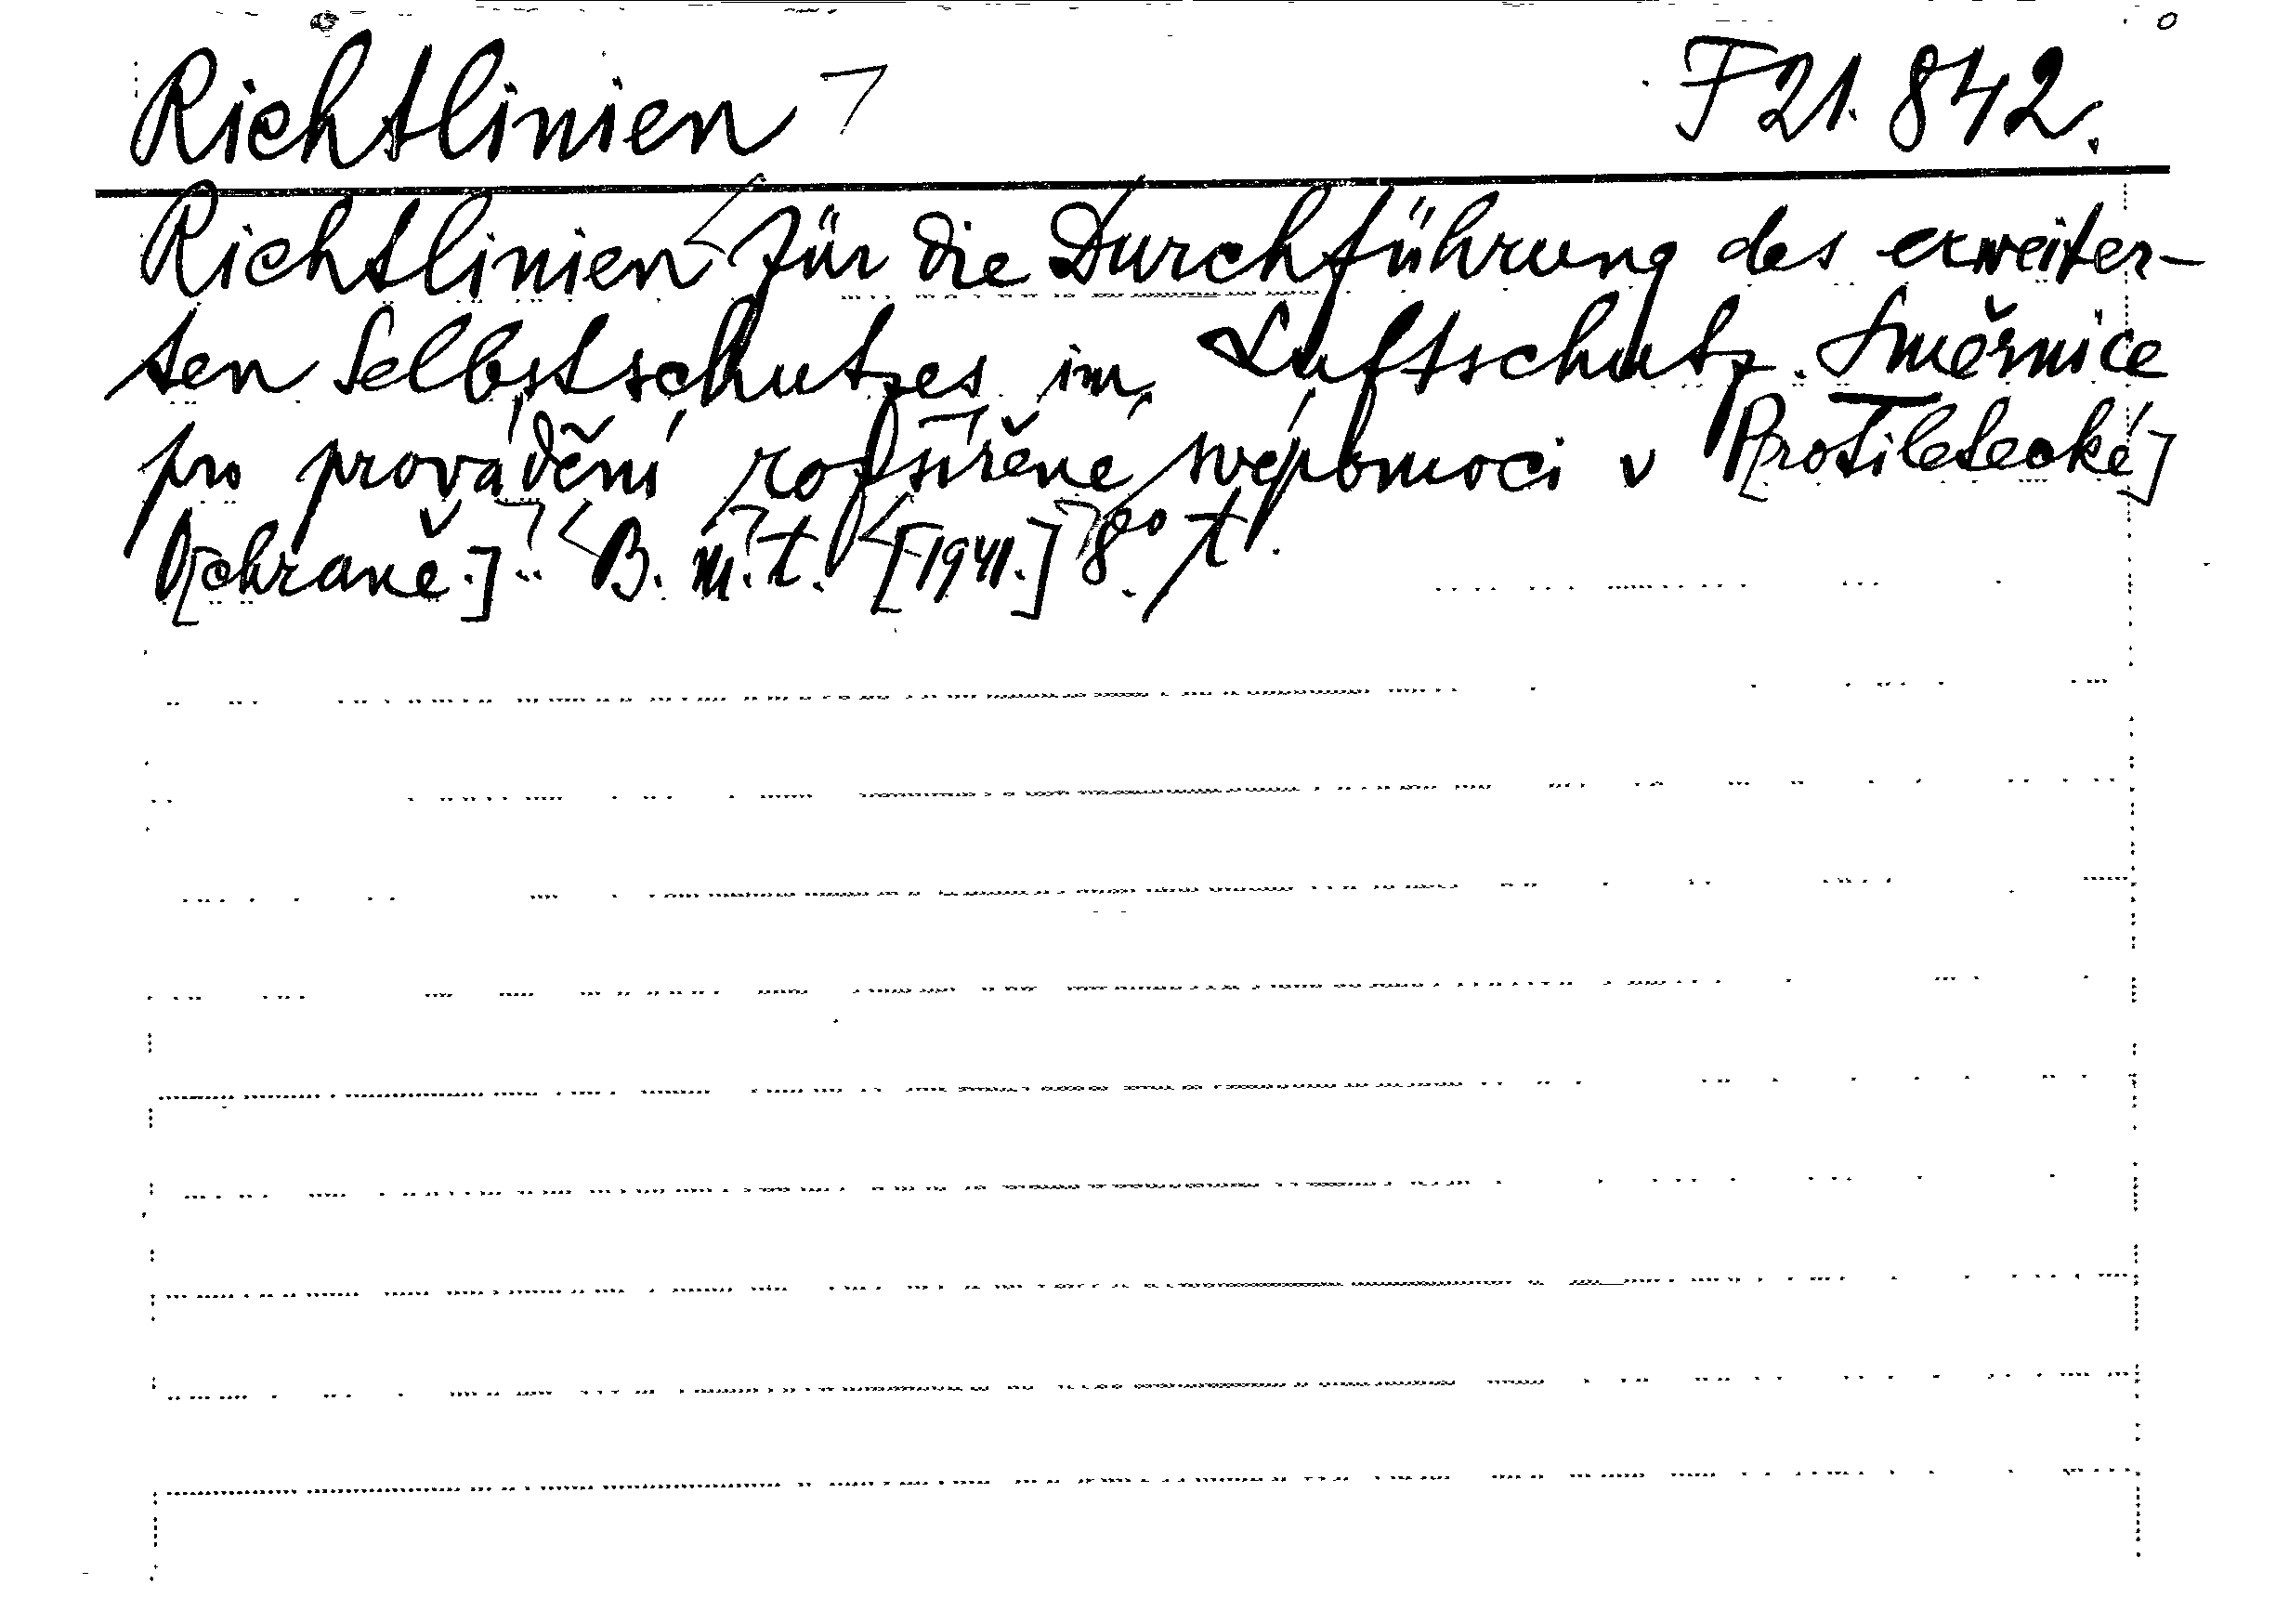 Richtlinien F 21.842.
Richtlinien für die Durchführung des erweiter-
ten Selbstschutzes im Luftschutz. Směrnice
pro provádění rozšířené svépomoci v P[rotiletecké]
O[chraně.] .. B. m. t. [1941.] 8°. t.